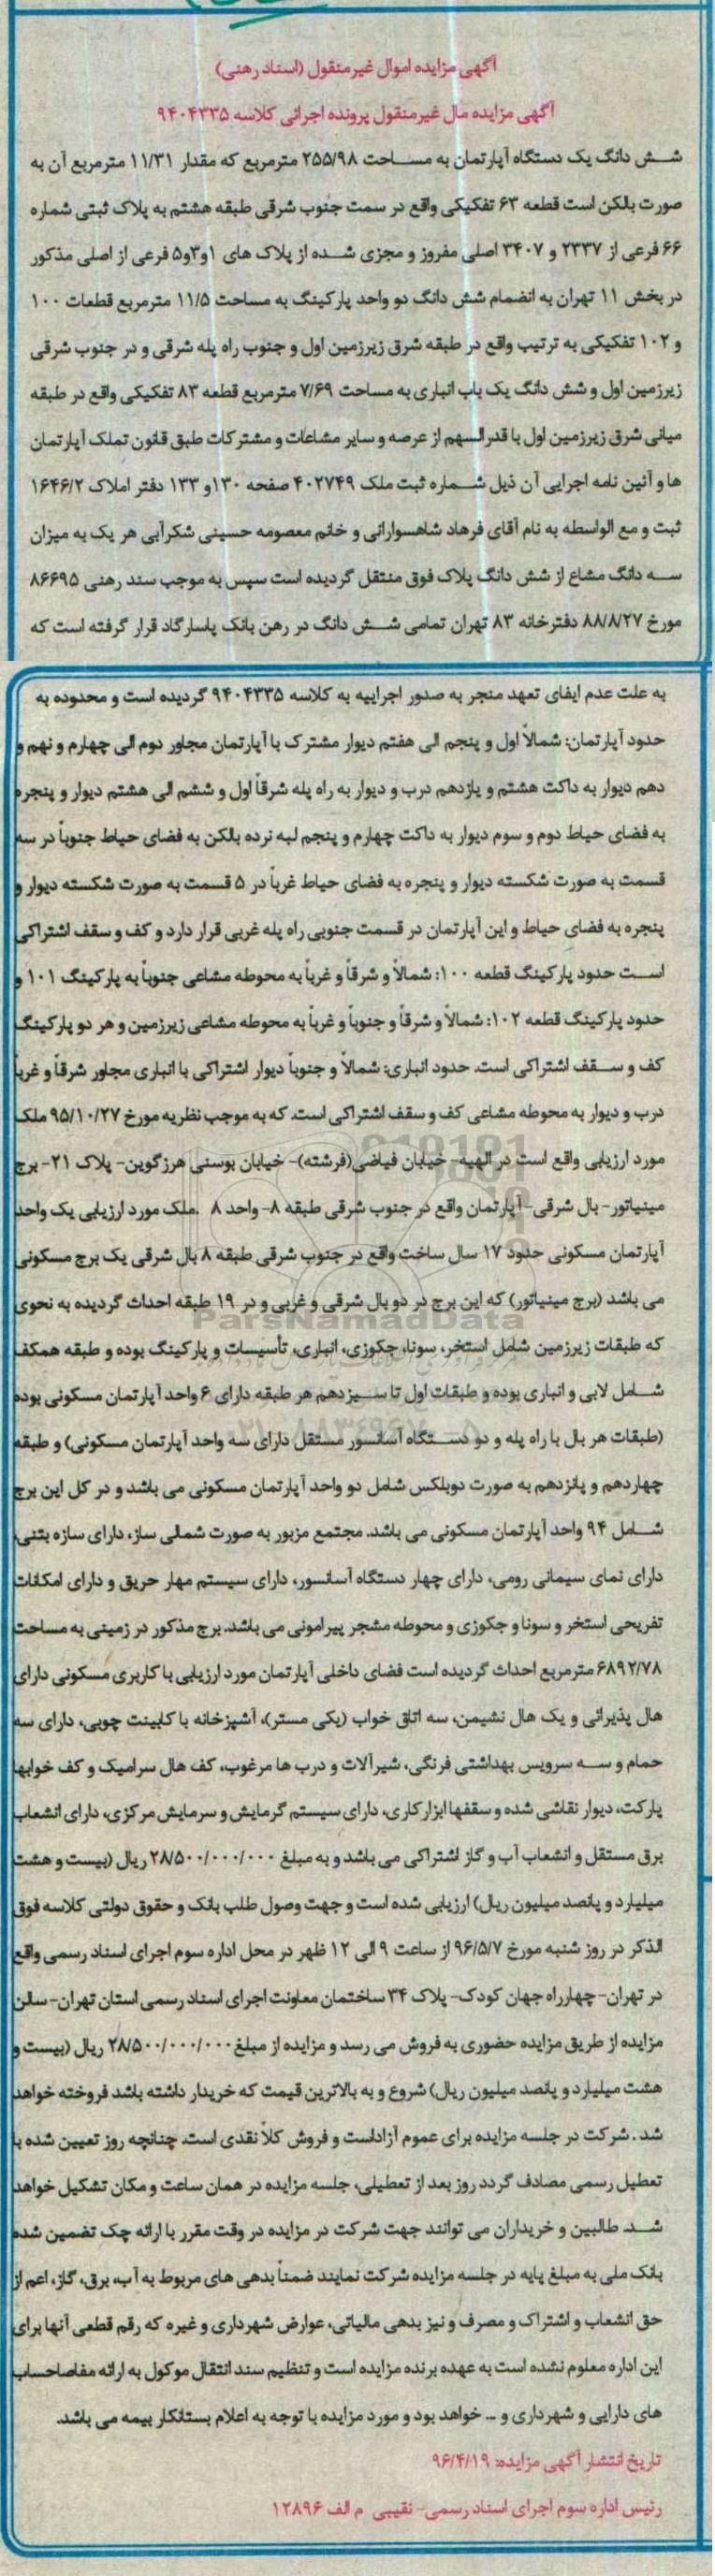 آگهی مزایده اموال غیرمنقول (اسناد رهنی)
آگهی مزایده مال غیرمنقول پرونده اجرائی کلاسه ۹۴۰۴۳۳۵
شش دانگ یک دستگاه آپارتمان به مساحت ۲۵۵/۹۸ مترمربع که مقدار ۱۱/۳۱ مترمربع آن به
صورت بالکن است قطعه ۶۳ تفکیکی واقع در سمت جنوب شرقی طبقه هشتم به پلاک ثبتی شماره
۶۶ فرعی از ۲۳۳۷ و ۳۴۰۷ اصلی مفروز و مجزی شده از پلاک های ۱و۳و۵ فرعی از اصلی مذکور
در بخش ۱۱ تهران به انضمام شش دانگ دو واحد پارکینگ به مساحت ۱۱/۵ مترمربع قطعات ۱۰۰
و ۱۰۲ تفکیکی به ترتیب واقع در طبقه شرق زیرزمین اول و جنوب راه پله شرقی و در جنوب شرقی
زیرزمین اول و شش دانگ یک باب انباری به مساحت ۷/۶۹ مترمربع قطعه ۸۳ تفکیکی واقع در طبقه
میانی شرق زیرزمین اول با قدرالسهم از عرصه و سایر مشاعات و مشترکات طبق قانون تملک آپارتمان
ها و آئین نامه اجرایی آن ذیل شماره ثبت ملک ۴۰۲۷۴۹ صفحه ۱۳۰و ۱۳۳ دفتر املاک ۱۶۴۶/۲
ثبت و مع الواسطه به نام آقای فرهاد شاهسوارانی و خانم معصومه حسینی شکرآبی هر یک به میزان
سه دانگ مشاع از شش دانگ پلاک فوق منتقل گردیده است سپس به موجب سند رهنی ۸۶۶۹۵
مورخ ۸۸/۸/۲۷ دفترخانه ۸۳ تهران تمامی شش دانگ در رهن بانک پاسارگاد قرار گرفته است که
به علت عدم ایفای تعهد منجر به صدور اجراییه به کلاسه ۹۴۰۴۳۳۵ گردیده است و محدوده به
حدود آپارتمان: شمالاً اول و پنجم الی هفتم دیوار مشترک با آپارتمان مجاور دوم الی چهارم و نهم و
دهم دیوار به داکت هشتم و یازدهم درب و دیوار به راه پله شرقاً اول و ششم الی هشتم دیوار و پنجره
به فضای حیاط دوم و سوم دیوار به داکت چهارم و پنجم لبه نرده بالکن به فضای حیاط جنوباً در سه
قسمت به صورت شکسته دیوار و پنجره به فضای حیاط غرباً در ۵ قسمت به صورت شکسته دیوار و
پنجره به فضای حیاط و این آپارتمان در قسمت جنوبی راه پله غربی قرار دارد و کف و سقف اشتراکی
است حدود پارکینگ قطعه ۱۰۰: شمالاً و شرقاً و غرباً به محوطه مشاعی جنوباً به پارکینگ ۱۰۱ و
حدود پارکینگ قطعه ۱۰۲: شمالاً و شرقاً و جنوباً و غرباً به محوطه مشاعی زیرزمین و هر دو پارکینگ
کف و سقف اشتراکی است. حدود انباری: شمالاً و جنوباً دیوار اشتراکی با انباری مجاور شرقاً و غرباً
درب و دیوار به محوطه مشاعی کف و سقف اشتراکی است. که به موجب نظریه مورخ ۹۵/۱۰/۲۷ ملک
مورد ارزیابی واقع است در الهیه- خیابان فیاضی(فرشته)- خیابان بوسنی هرزگوین- پلاک ۲۱- برج
مینیاتور- بال شرقی- آپارتمان واقع در جنوب شرقی طبقه ۸- واحد ۸ .ملک مورد ارزیابی یک واحد
آپارتمان مسکونی حدود ۱۷ سال ساخت واقع در جنوب شرقی طبقه ۸ بال شرقی یک برج مسکونی
می باشد (برج مینیاتور) که این برج در دو بال شرقی و غربی و در ۱۹ طبقه احداث گردیده به نحوی
ParsNamadData
که طبقات زیرزمین شامل استخر، سونا، جکوزی، انباری، تأسیسات و پارکینگ بوده و طبقه همکف
شامل لابی و انباری بوده و طبقات اول تا سیزدهم هر طبقه دارای ۶ واحد آپارتمان مسکونی بوده
(طبقات هر بال با راه پله و دو دستگاه آسانسور مستقل دارای سه واحد آپارتمان مسکونی) و طبقه
چهاردهم و پانزدهم به صورت دوبلکس شامل دو واحد آپارتمان مسکونی می باشد و در کل این برج
شامل ۹۴ واحد آپارتمان مسکونی می باشد. مجتمع مزبور به صورت شمالی ساز، دارای سازه بتنی،
دارای نمای سیمانی رومی، دارای چهار دستگاه آسانسور، دارای سیستم مهار حریق و دارای امکانات
تفریحی استخر و سونا و جکوزی و محوطه مشجر پیرامونی می باشد. برج مذکور در زمینی به مساحت
۶۸۹۲/۷۸ مترمربع احداث گردیده است فضای داخلی آپارتمان مورد ارزیابی با کاربری مسکونی دارای
هال پذیرائی و یک هال نشیمن، سه اتاق خواب (یکی مستر)، آشپزخانه با کابینت چوبی، دارای سه
حمام و سه سرویس بهداشتی فرنگی، شیرآلات و درب ها مرغوب، کف هال سرامیک و کف خوابها
پارکت، دیوار نقاشی شده و سقفها ابزارکاری، دارای سیستم گرمایش و سرمایش مرکزی، دارای انشعاب
برق مستقل و انشعاب آب و گاز اشتراکی می باشد و به مبلغ ۲۸/۵۰۰/۰۰۰/۰۰۰ ریال (بیست و هشت
میلیارد و پانصد میلیون ریال) ارزیابی شده است و جهت وصول طلب بانک و حقوق دولتی کلاسه فوق
الذکر در روز شنبه مورخ ۹۶/۵/۷ از ساعت ۹ الی ۱۲ ظهر در محل اداره سوم اجرای اسناد رسمی واقع
در تهران- چهارراه جهان کودک- پلاک ۳۴ ساختمان معاونت اجرای اسناد رسمی استان تهران- سالن
مزایده از طریق مزایده حضوری به فروش می رسد و مزایده از مبلغ ۲۸/۵۰۰/۰۰۰/۰۰۰ ریال (بیست و
هشت میلیارد و پانصد میلیون ریال) شروع و به بالاترین قیمت که خریدار داشته باشد فروخته خواهد
شد . شرکت در جلسه مزایده برای عموم آزاداست و فروش کلاً نقدی است. چنانچه روز تعیین شده با
تعطیل رسمی مصادف گردد روز بعد از تعطیلی، جلسه مزایده در همان ساعت و مکان تشکیل خواهد
شد. طالبین و خریداران می توانند جهت شرکت در مزایده در وقت مقرر با ارائه چک تضمین شده
بانک ملی به مبلغ پایه در جلسه مزایده شرکت نمایند ضمناً بدهی های مربوط به آب، برق، گاز، اعم از
حق انشعاب و اشتراک و مصرف و نیز بدهی مالیاتی، عوارض شهرداری و غیره که رقم قطعی آنها برای
این اداره معلوم نشده است به عهده برنده مزایده است و تنظیم سند انتقال موکول به ارائه مفاصاحساب
های دارایی و شهرداری و ... خواهد بود و مورد مزایده با توجه به اعلام بستانکار بیمه می باشد.
تاریخ انتشار آگهی مزایده: ۹۶/۴/۱۹
رئیس اداره سوم اجرای اسناد رسمی- نقیبی م الف ۱۲۸۹۶